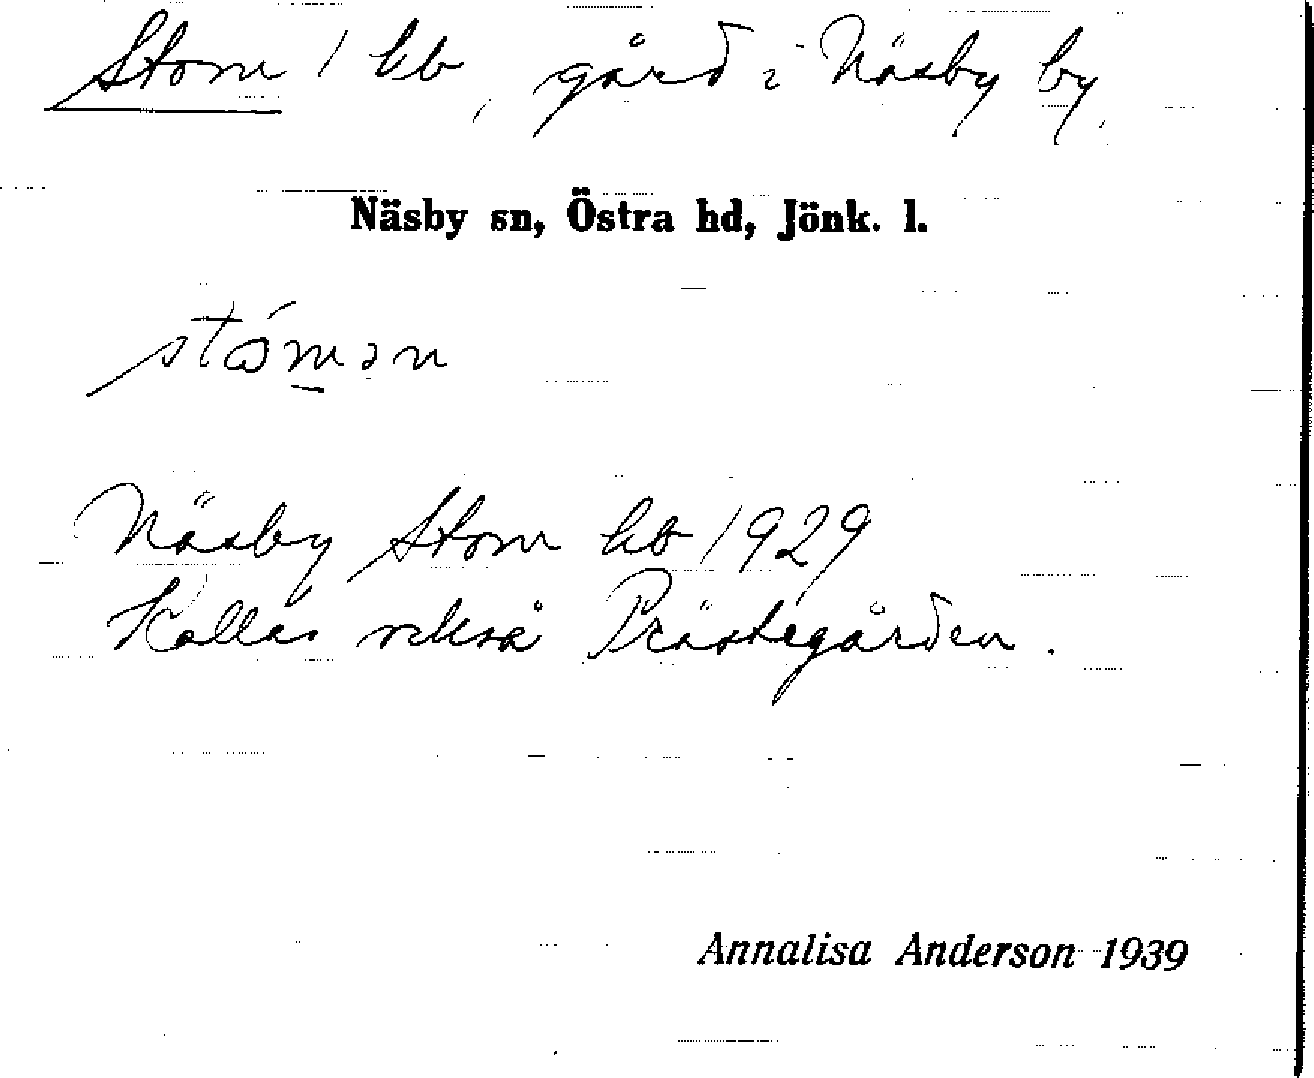 Stom 1 hb, gård i Näsby by.
Näsby sn, Östra hd, Jönk. l.
Näsby Stom hb 1929
Kallas också Prästegården.
Annalisa Anderson 1939